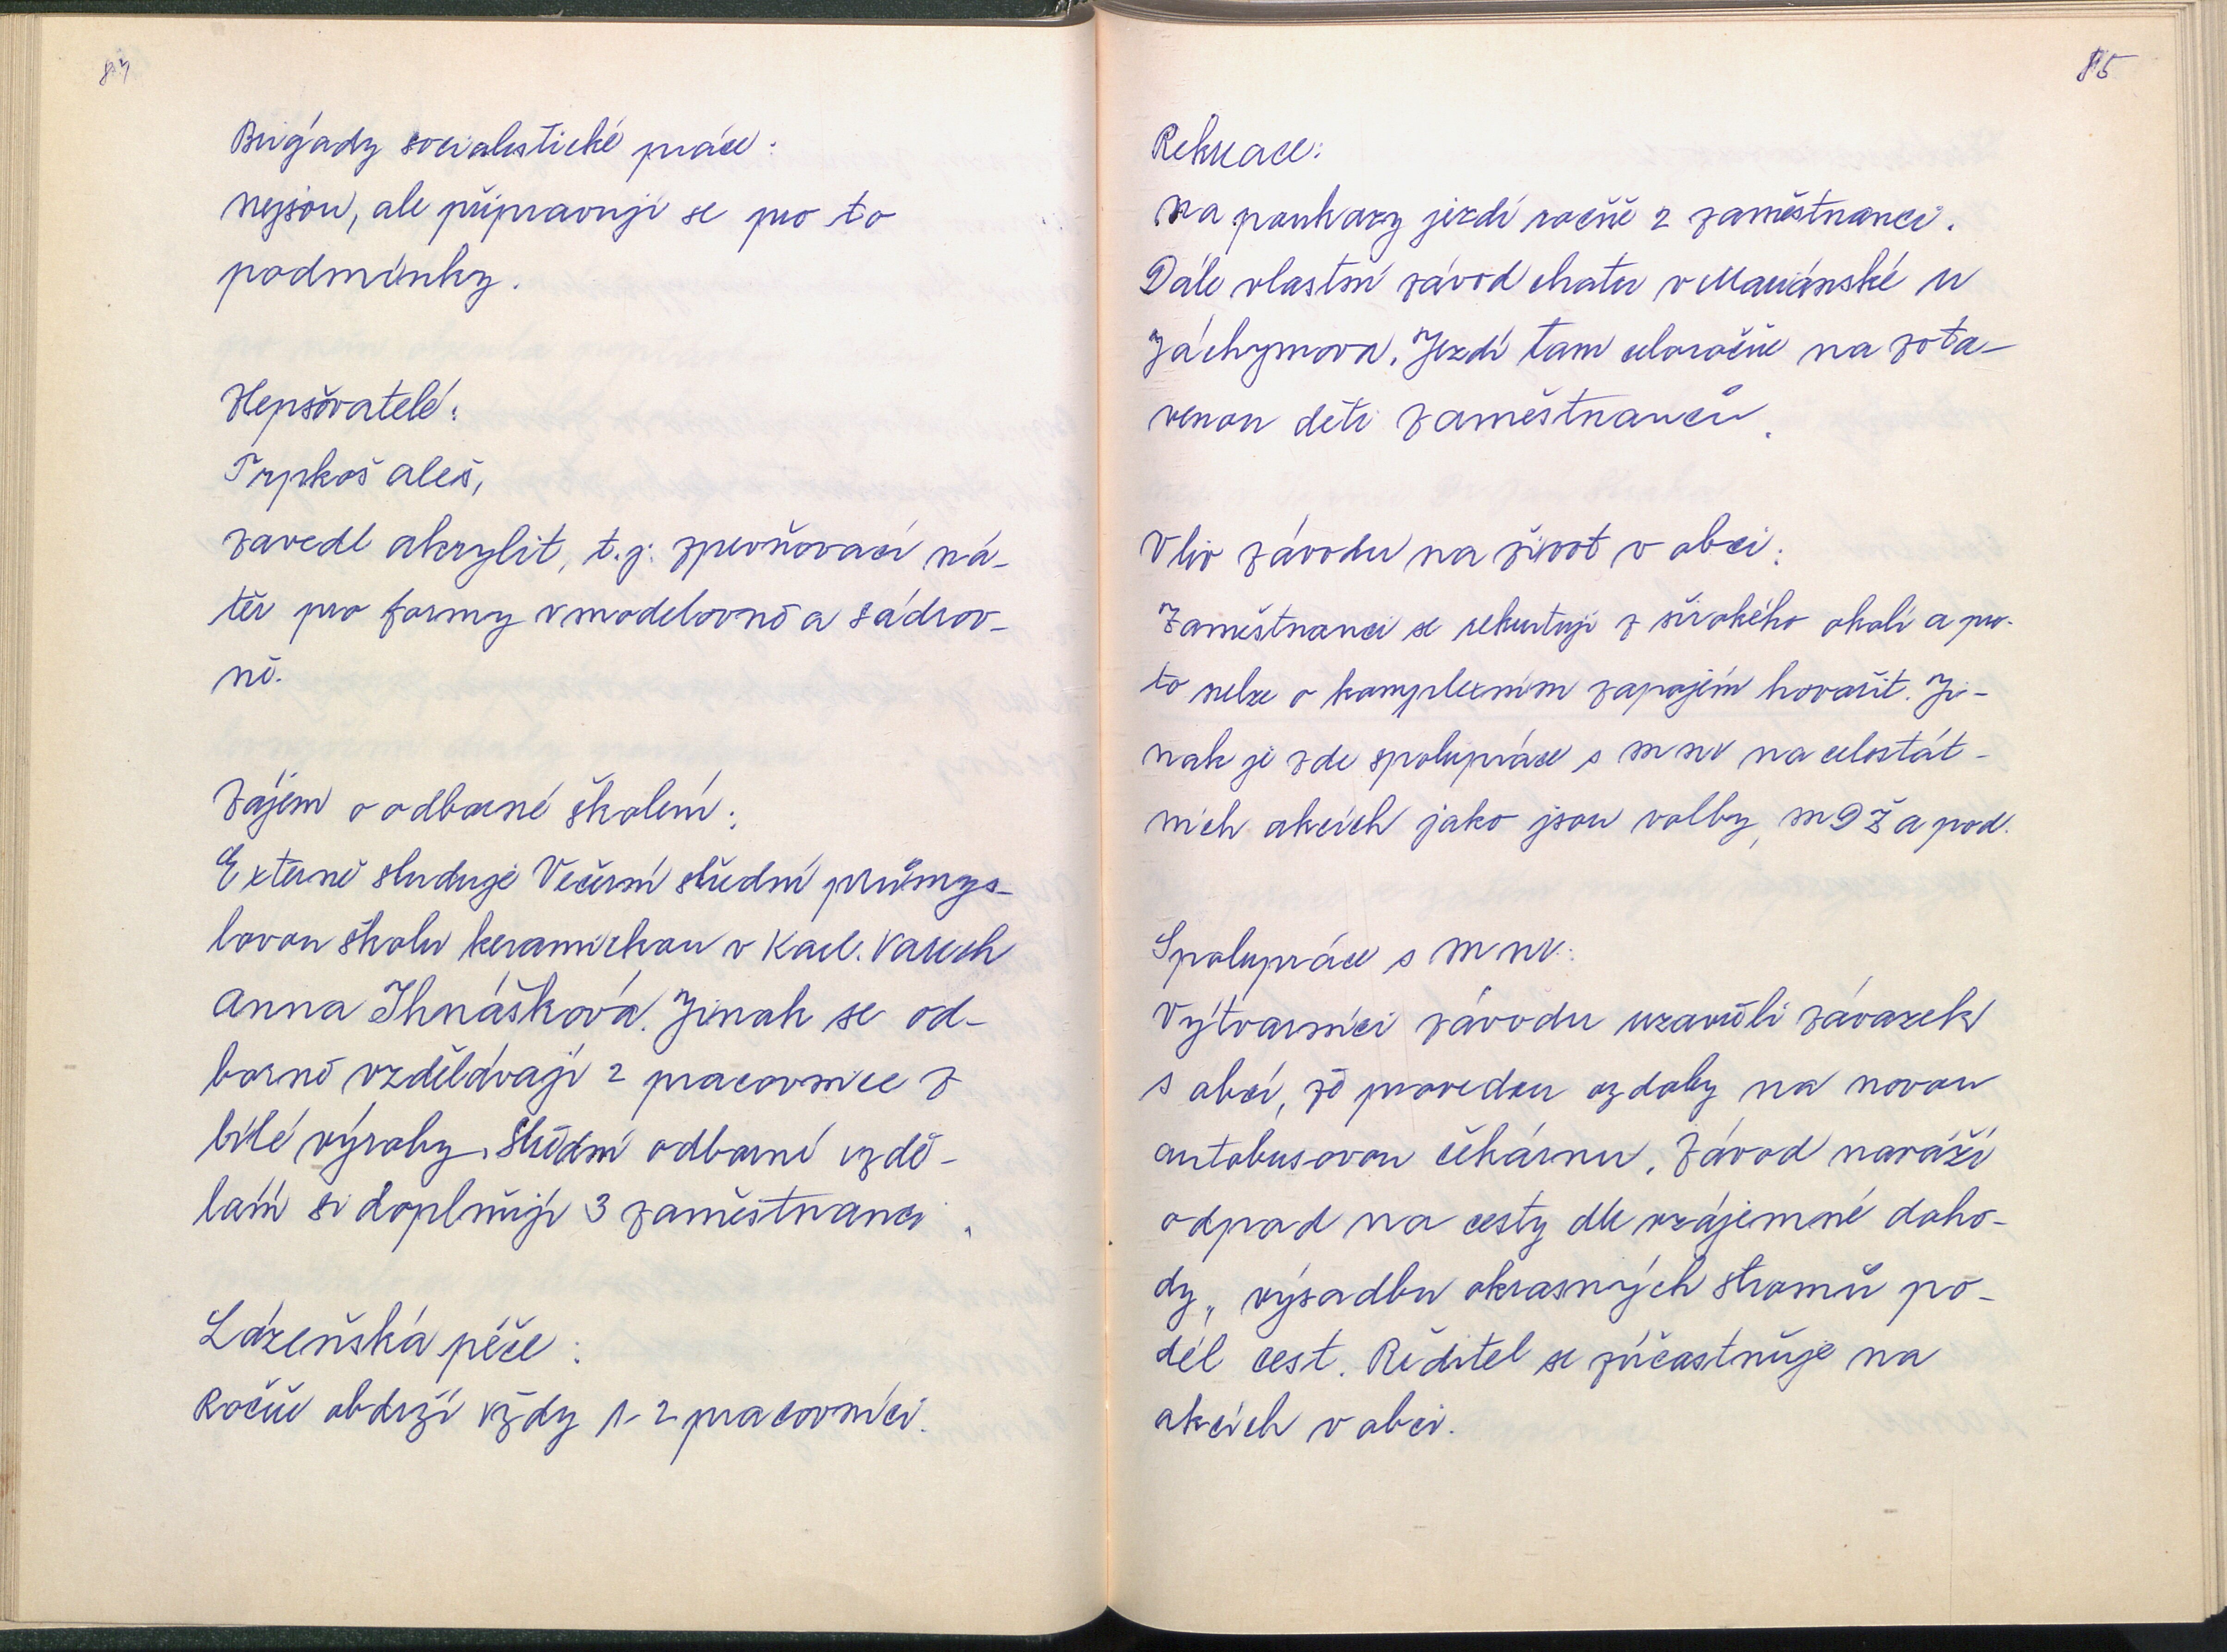 84
Brigády socialistické práce:
nejsou, ale připravují se pro to
podmínky.
Zlepšovatelé:
Trpkoš Aleš,
zavedl akrylit, t.j. zpevňovací ná-
těr pro formy v modelovně a sádrov-
ně.
Zájem o odborné školení:
Externě studuje Večerní střední průmys-
lovou školu keramickou v Karl. Varech
Anna Ihnášková. Jinak se od-
borně vzdělávají 2 pracovnice z
bílé výroby. Střední odborné vzdě-
lání si doplňují 3 zaměstnanci.
Lázeňská péče:
Ročně obdrží vždy 1-2 pracovníci.
85
Rekreace:
Na poukazy jezdí ročně 2 zaměstnanci.
Dále vlastní závod chatu v Mariánské u
Jáchymova. Jezdí tam celoročně na zota-
venou děti zaměstnanců.
Vliv závodu na život v obci:
Zaměstnanci se rekrutují z širokého okolí a pro-
to nelze o komplexním zapojení hovořit. Ji-
nak je zde spolupráce s MNV na celostát-
ních akcích jako jsou volby, MDŽ a pod.
Spolupráce s MNV:
Výtvarníci závodu uzavřeli závazek
s obcí, že provedou ozdoby na novou
autobusovou čekárnu. Závod naváží
odpad na cesty dle vzájemné doho-
dy, výsadbu okrasných stromů po-
dél cest. Ředitel se zúčastňuje na
akcích v obci.